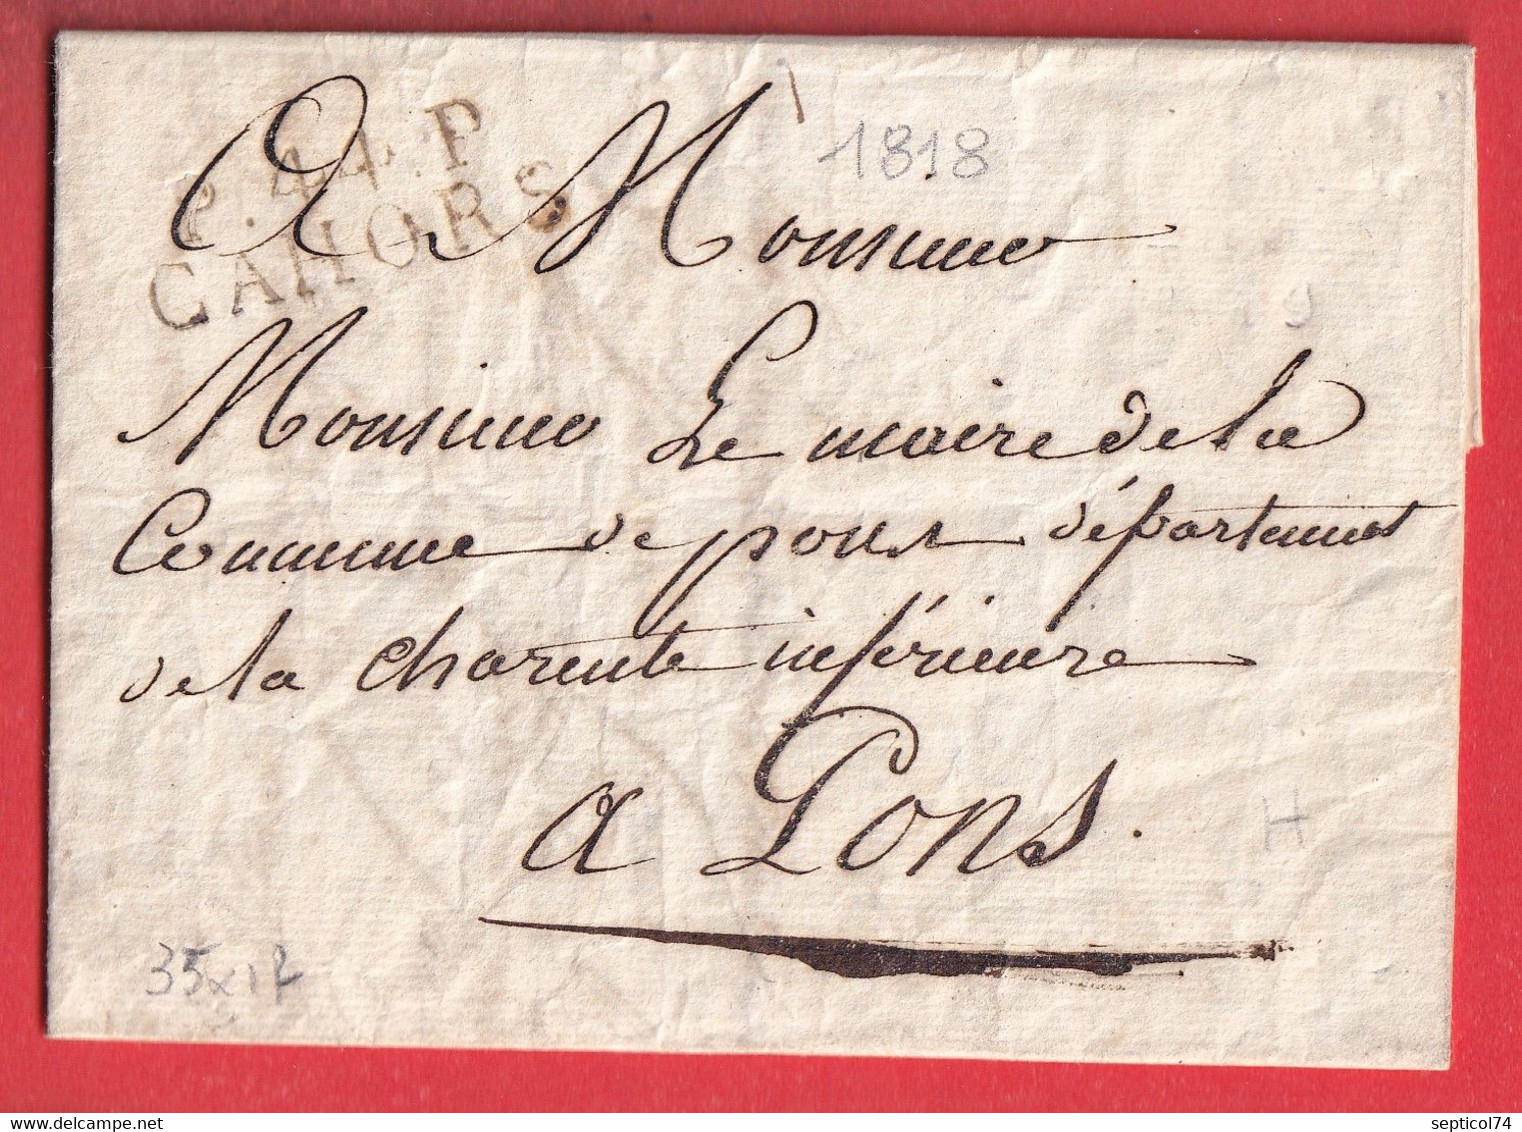 P.44.P
CAHORS
1818
A Monsieur
Monsieur Le maire de la
Commune de pons département
de la charente inférieure
a Pons.
H
35x1P
septicol74